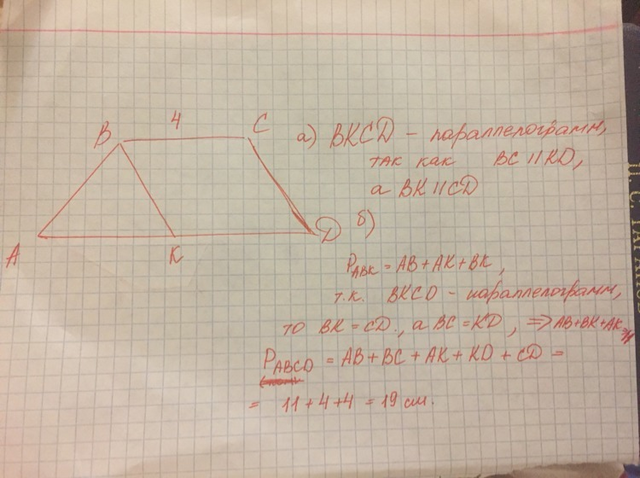 4
B
C
A
K
D
а) BKCD – параллелограмм,
так как BC || KD,
а BK || CD
б)
P ABK = AB + AK + BK,
т.к. BKCD – параллелограмм,
то BK = CD, а BC = KD, ⇒ AB+BK+AK
P ABCD = AB + BC + AK + KD + CD =
= 11 + 4 + 4 = 19 см.